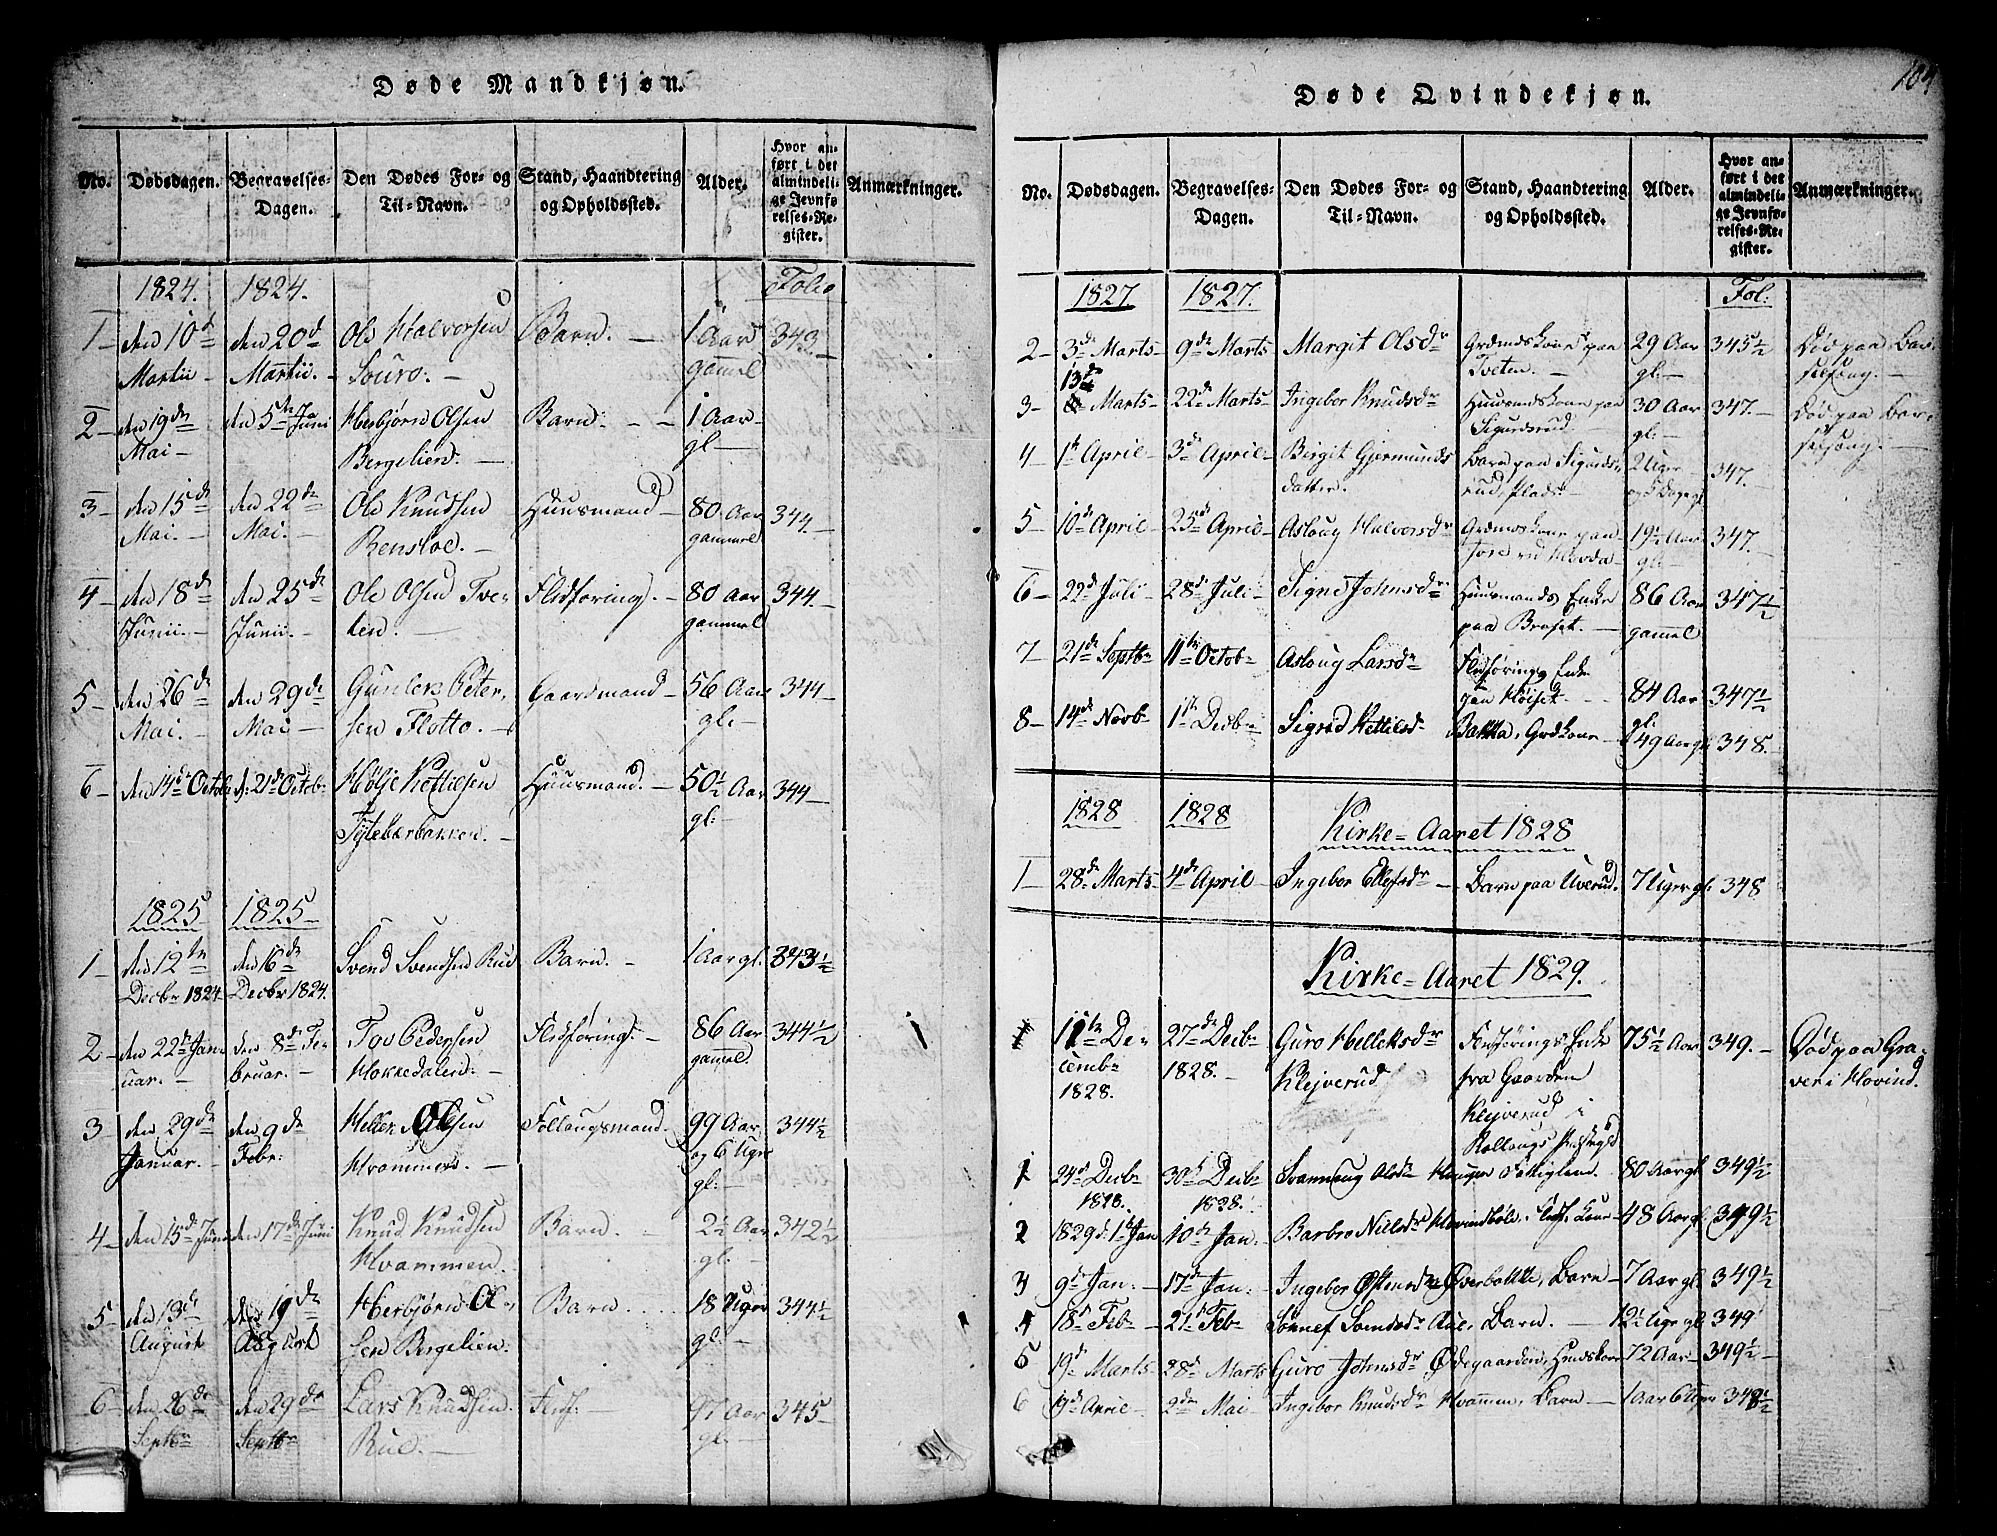 Døde Mandkjøn.
No. Dødsdagen. Begravelses-Dagen. Den Dødes For- og Til-Navn. Stand, Haandtering og Opholdssted. Alder. Hvor anført i det almindelige Jevnførelses-Register. Anmærkninger.
1824. 1824. Folio
1 den 10d Martii den 20d Martii. Ole Halvorsen Barn. 1 Aar gamel 343
2 den 19de Mai den 5te Juni Herbjørn Olsen Bergelien. Barn. 1 Aar gl
3 den 15de Mai. den 22de Mai. Ole Knudsen Huusmand 80 Aar gammel 344
4 den 18de Junii. den 25de Junii. Ole Olsen Tveten. Flidføring. 80 Aar gammel 344
5 den 26de Mai. den 29de Mai Gunlek Petersen Flotto. Gaardmand 56 Aar gl. 344
6 den 14de Octob d: 21de Octob Hølje Kettilsen Tytebærbakken. Huusmand. 50½ Aar gl: 344
1825 1825
1 den 12te Decbr 1824 den 16de Decbr 1824. Svend Svendsen Rud Barn. 1 Aar gl. 343½
2 den 22de Januar. den 8de Februar. Tov Pedersen Hokkedalen. Flidføring. 86 Aar gamel. 344½
3 den 29de Januar. den 9de Febr. Hellek Olsen Hvammen. 99 Aar og 6 Uger gl: 344½
4 den 15de Juni den 17de Juni Knud Knudsen Hvammen. Barn. 2½ Aar gl. 342½
5 den 13de August den 19de August Herbjørn Olsen Bergelien. Barn 18 Uger gl. 344½
6 den 26de Septbr den 29de Septbr Lars Knudsen Rue. Flidf. 97 Aar gl. 345
Døde Qvindekjøn.
No. Dødsdagen. Begravelses-Dagen. Den Dødes For- og Til-Navn. Stand, Haandtering og Opholdssted. Alder. Hvor anført i det almindelige Jevnførelses-Register. Anmærkninger.
1827 1827. Fol:
2 3de Marts 9de Marts Margit Olsdr Grdmdskone paa Tveten. 29 Aar gl. 345½ Død paa Barselseng.
3 13de Marts 22de Marts Ingebor Knudsdr Huusmdskone paa Sigurdsrud 30 Aar gl. 347. Død paa Barselseng.
4 1te April 3de April Birgit Gjermundsdatter. Barn paa Sigurdsrud, Plads 2 Uger og 5 Dage gl 347.
5 10de April 25de April Asloug Halvorsdr Grdmdskone paa 19½ Aar gl. 347.
6 22de Juli 28de Juli Signe Johnsdr Huusmands Enke paa Broset. 86 Aar gamel 347½
7 21de Septbr 11te Octob Asloug Larsdr Flidførings Enke paa Høiset 84 Aar gl. 347½
8 14de Novb 1te Decbr Sigrid Kettilsdr Bakka, Grdkone 49 Aar gl 348.
1828 1828 Kirke-Aaret 1828
1 28de Marts 4de April Ingebor Ellefsdr Barn paa Uverud. 7 Uger gl. 348
Kirke-Aaret 1829.
11te December 1828. 27de Decbr 1828. Guro Helleksdr Klejverud Enke fra Gaarden Klejverud i Rollaugs 75½ Aar 349. Død paa Graver i Hovind.
1 24d Decbr 1828. 30d Decbr 1828. Olsdr 80 Aar gl 349½
2 1829 d: 1te Jan 10de Jan: Barbro Nielsdr Hovindbøle. Kone 48 Aar gl. 349½
3 9d Jan: 17de Jan: Ingebor Østensdr Øverbakke, Barn 7 Aar gl. 349½
4 18d Feb 21d Feb Sønnef Rue, Barn. 12½ Uge gl 349
5 19d Marts 28d Marts Guro Johnsdr Ødegaarden, Huuskone 72 Aar 349½
6 19d April 2de Mai Ingebor Knudsdr Hvammen, Barn 1 Aar 6 Uger 348½